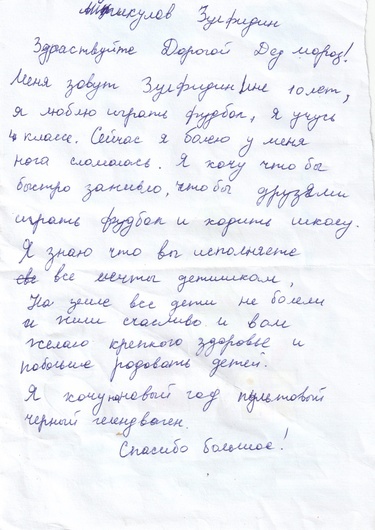 Мйрзикулов Зулфидин
Здраствуйте Дорогой Дед мороз!
Меня зовут Зулфидин мне 10 лет,
я люблю играть фудбол, я учусь
4 классе. Сейчас я болею у меня
нога сломалось. Я хочу что бы
быстро зажило, чтобы друзями
играть фудбол и ходить шкосу.
Я знаю что вы исполняете
все мечты детишкам,
На земле все дети не болели
и жили счасливо и вам
желаю крепкого здоровье и
побольше родовать детей.
Я хочу на новый год пультовый
черный гелендваген.
Спасибо большое!